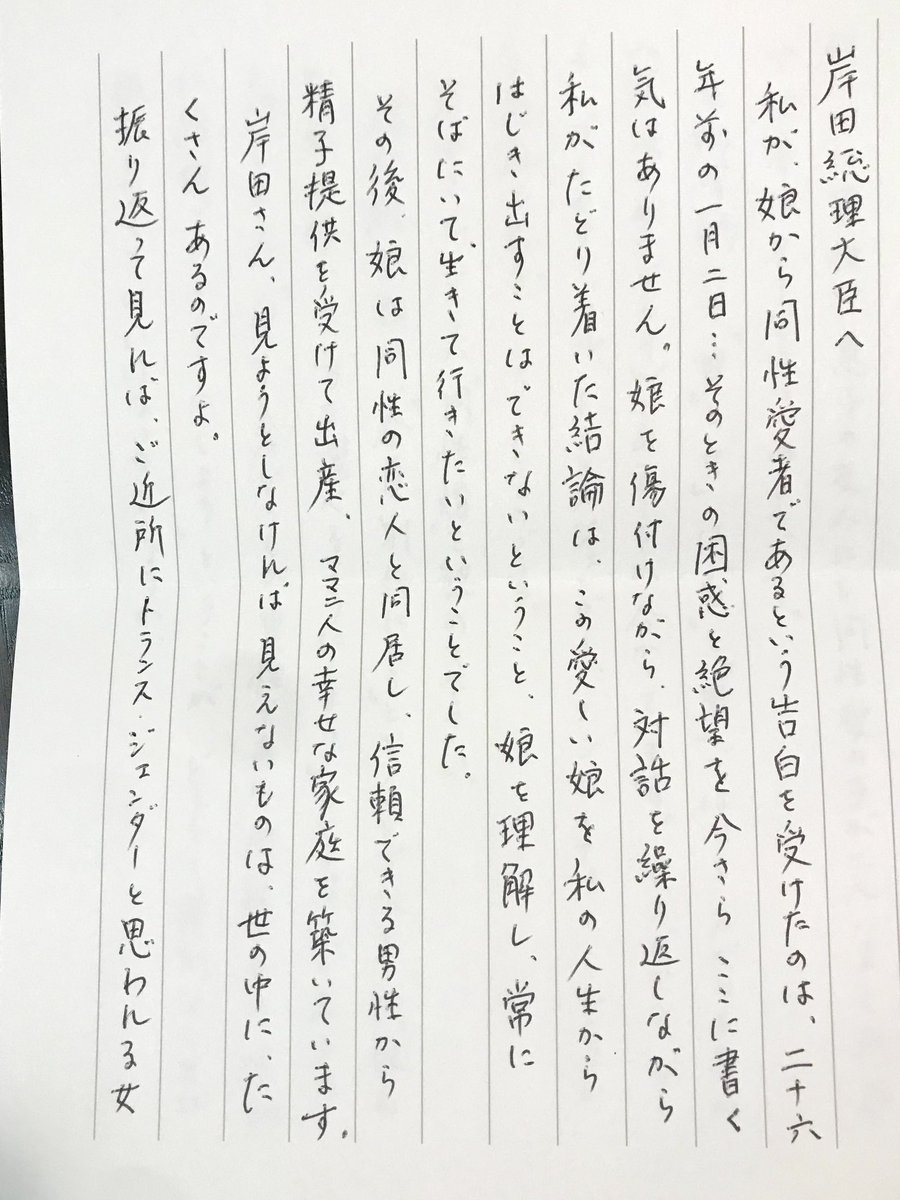 岸田総理大臣へ
私が、娘から同性愛者であるという告白を受けたのは、二十六
年前の一月二日…そのときの困惑と絶望を今さらここに書く
気はありません。娘を傷付けながら、対話を繰り返しながら
私がたどり着いた結論は、この愛しい娘を私の人生から
はじき出すことはできないということ、娘を理解し、常に
そばにいて、生きて行きたいということでした。
その後、娘は同性の恋人と同居し、信頼できる男性から
精子提供を受けて出産、ママ二人の幸せな家庭を築いています。
岸田さん、見ようとしなければ見えないものは、世の中に、た
くさんあるのですよ。
振り返って見れば、ご近所にトランス・ジェンダーと思われる女